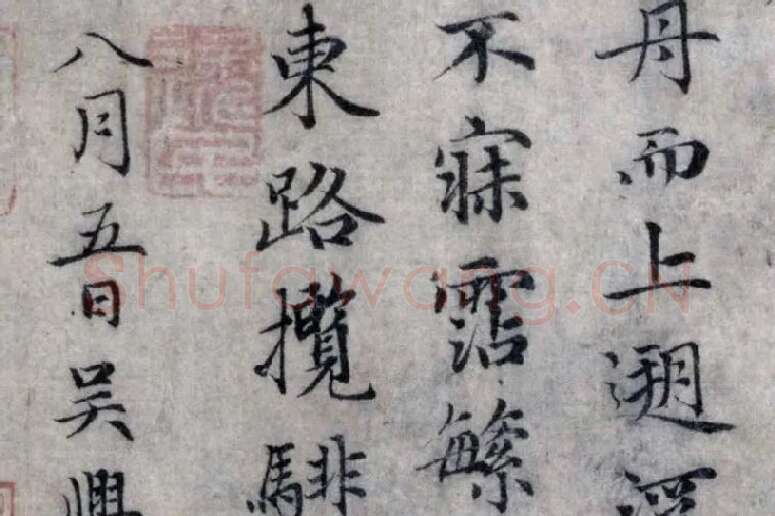 舟而上遡
不寐霑繁
東路攬騑
八月五日吳興
Shufawang.CN